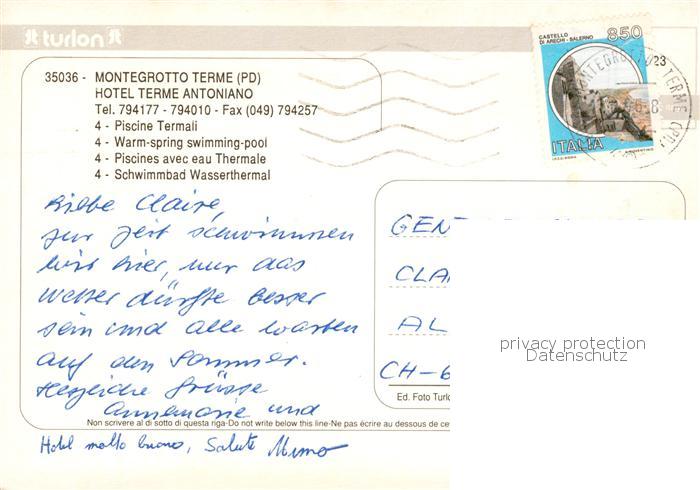 turlon
CASTELLO
DI ARECHI - SALERNO
850
ITALIA
I.P.Z.S. ROMA
MONTEGROTTO TERME (PD)
23
35036 - MONTEGROTTO TERME (PD)
HOTEL TERME ANTONIANO
Tel. 794177 - 794010 - Fax (049) 794257
4 - Piscine Termali
4 - Warm-spring swimming-pool
4 - Piscines avec eau Thermale
4 - Schwimmbad Wasserthermal
Liebe Claire,
zur Zeit schwimmen
wir hier, nur das
Wetter dürfte besser
sein und alle warten
auf den Sommer.
Herzliche Grüsse
Annemarie und
GEN
CLA
AL
CH-6
privacy protection
Datenschutz
Ed. Foto Turlo
Non scrivere al di sotto di questa riga-Do not write below this line-Ne pas écrire au dessous de ce
Hotel molto buono, Saluti Mimo